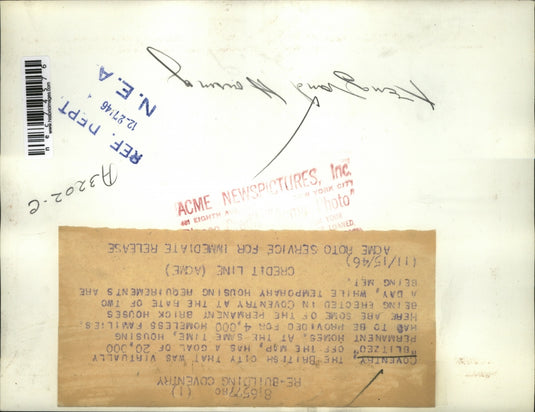 England Housing
REF. DEPT.
12-27-46
N. E. A
A3202-C
ACME NEWSPICTURES, Inc.
EIGHTH
NEW YORK CITY
Photo"
(1)
RE-BUILDING COVENTRY
COVENTRY--THE BRITISH CITY THAT WAS VIRTUALLY
"BLITZED" OFF THE MAP, HAS A GOAL OF 20,000
PERMANENT HOMES. AT THE SAME TIME, HOUSING
HAD TO BE PROVIDED FOR 4,000 HOMELESS FAMILIES.
HERE ARE SOME OF THE PERMANENT BRICK HOUSES
BEING ERECTED IN COVENTRY AT THE RATE OF TWO
A DAY, WHILE TEMPORARY HOUSING REQUIREMENTS ARE
BEING MET.
CREDIT LINE (ACME)
(11/15/46)
ACME ROTO SERVICE FOR IMMEDIATE RELEASE